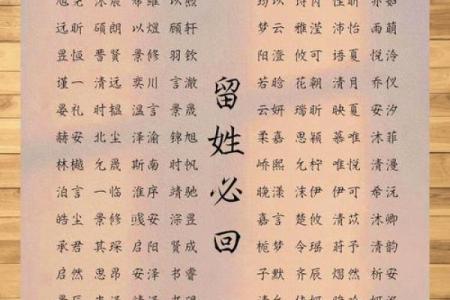 远昕 硕朗 以煜
昱恒 晋贤 景修 羽钦
谨一 清远 奕川 言澈
晏礼 温言 景晟
赫安 北尘 泽渝 锦旭
林樾 允晟 斯南 时帆
泊言 一临 淮序 靖驰
皓尘 景修 彧安 淙昱
承君 其琛 启阳 贤成
启然 思昂 安泽 书睿
留姓必回
梦云 雅滢 沛怡 雨萌
阳澄 攸可 语夏 悦泠
若晗 花朝 清月 乔仪
云妍 瑞昕 映夏 安汐
柔嘉 思颖 慕唯 沐菲
峤熙 允柠 唯悦 清漫
晚漾 沫伊 伊可 希沅
嘉言 楚攸 清苡 沐卿
栀梦 令瑶 莳予 清韵
子默 齐辰 熠然 祈安